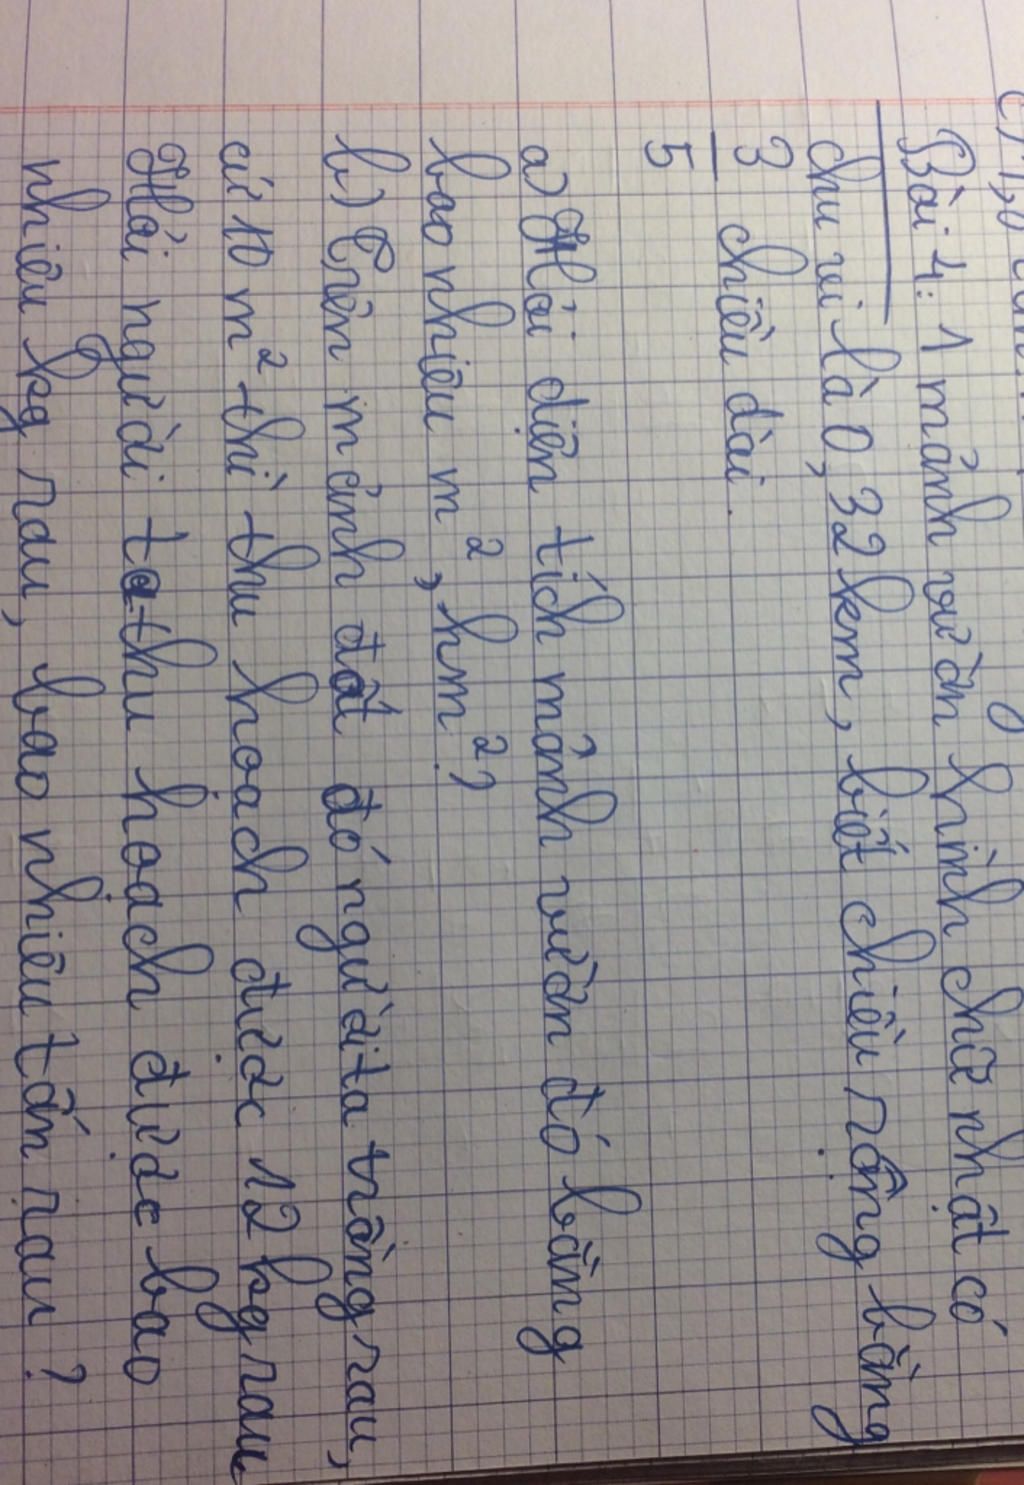 Bài 4: 1 mảnh vườn hình chữ nhật có
chu vi là 0,32 km, biết chiều rộng bằng
3/5 chiều dài.
a) Hỏi diện tích mảnh vườn đó bằng
bao nhiêu m², hm²?
b) Trên mảnh đất đó người ta trồng rau,
cứ 10 m² thì thu hoạch được 12 kg rau
Hỏi người ta thu hoạch được bao
nhiêu kg rau, bao nhiêu tấn rau?